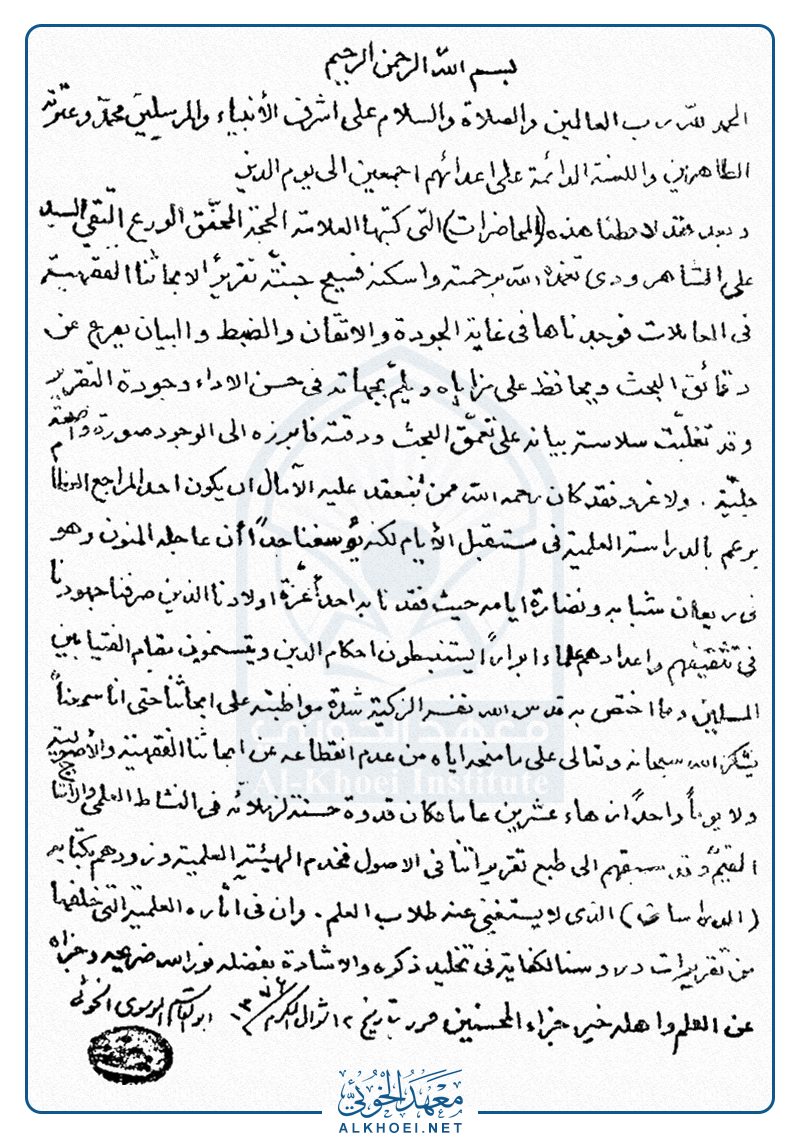 بسم الله الرحمن الرحيم
الحمد لله رب العالمين والصلاة والسلام على اشرف الأنبياء والمرسلين محمد وعترته
الطاهرين واللعنة الدائمة على اعدائهم اجمعين الى يوم الدين
وبعد فقد لاحظنا هذه (المحاضرات) التي كتبها العلامة الحجة المحقق الورع التقي السيد
علي الشاهرودي تغمده الله برحمته واسكنه فسيح جنته تقريراً لابحاثنا الفقهية
في المعاملات فوجدناها في غاية الجودة والاتقان والضبط والبيان يعرج عن
دقائق البحث ويحافظ على مزاياه ويلم بجهاته في حسن الاداء وجودة التقرير
وقد تغلبت سلاسة بيانه على تعمق البحث ودقته فابرزه الى الوجود صورة واضحة
جلية . ولا غرو فقد كان رحمه الله ممن تنعقد عليه الآمال ان يكون احد المراجع العظام
يزعم بالدراسة العلمية في مستقبل الأيام لكنه يؤسفنا جداً أن عاجله المنون وهو
في ريعان شبابه ونضارة ايامه حيث فقدنا به احد أعزة اولادنا الذين صرفنا جهودنا
في تثقيفهم واعدادهم علماء ابراراً يستنبطون احكام الدين ويتسنمون مقام الفتيا بين
المسلمين ومما اختص به قدس الله نفسه الزكية شدة مواظبته على ابحاثنا حتى انا سمعناه
يشكر الله سبحانه وتعالى على ما منحه اياه من عدم انقطاعه عن ابحاثنا الفقهية والأصولية
ولا يوماً واحداً زهاء عشرين عاما فكان قدوة حسنة لزملائه في النشاط العلمي والانتاج
القيّم وقد سبقهم الى طبع تقريراتنا في الاصول فخدم الهيئة العلمية وزودهم بكتابه
(الدراسات) الذي لا يستغنى عنه طلاب العلم . وان في آثاره العلمية التي خلفها
من تقريرات دروسنا لكفاية في تخليد ذكره والاشادة بفضله نور الله ضريحه وجزاه
عن العلم واهله خير جزاء المحسنين حرر بتاريخ ١٢ شوال المكرم ١٣٧٦ ابو القاسم الموسوي الخوئي
معهد الخوئي
Al-Khoei Institute
معهد الخوئي
ALKHOEI.NET